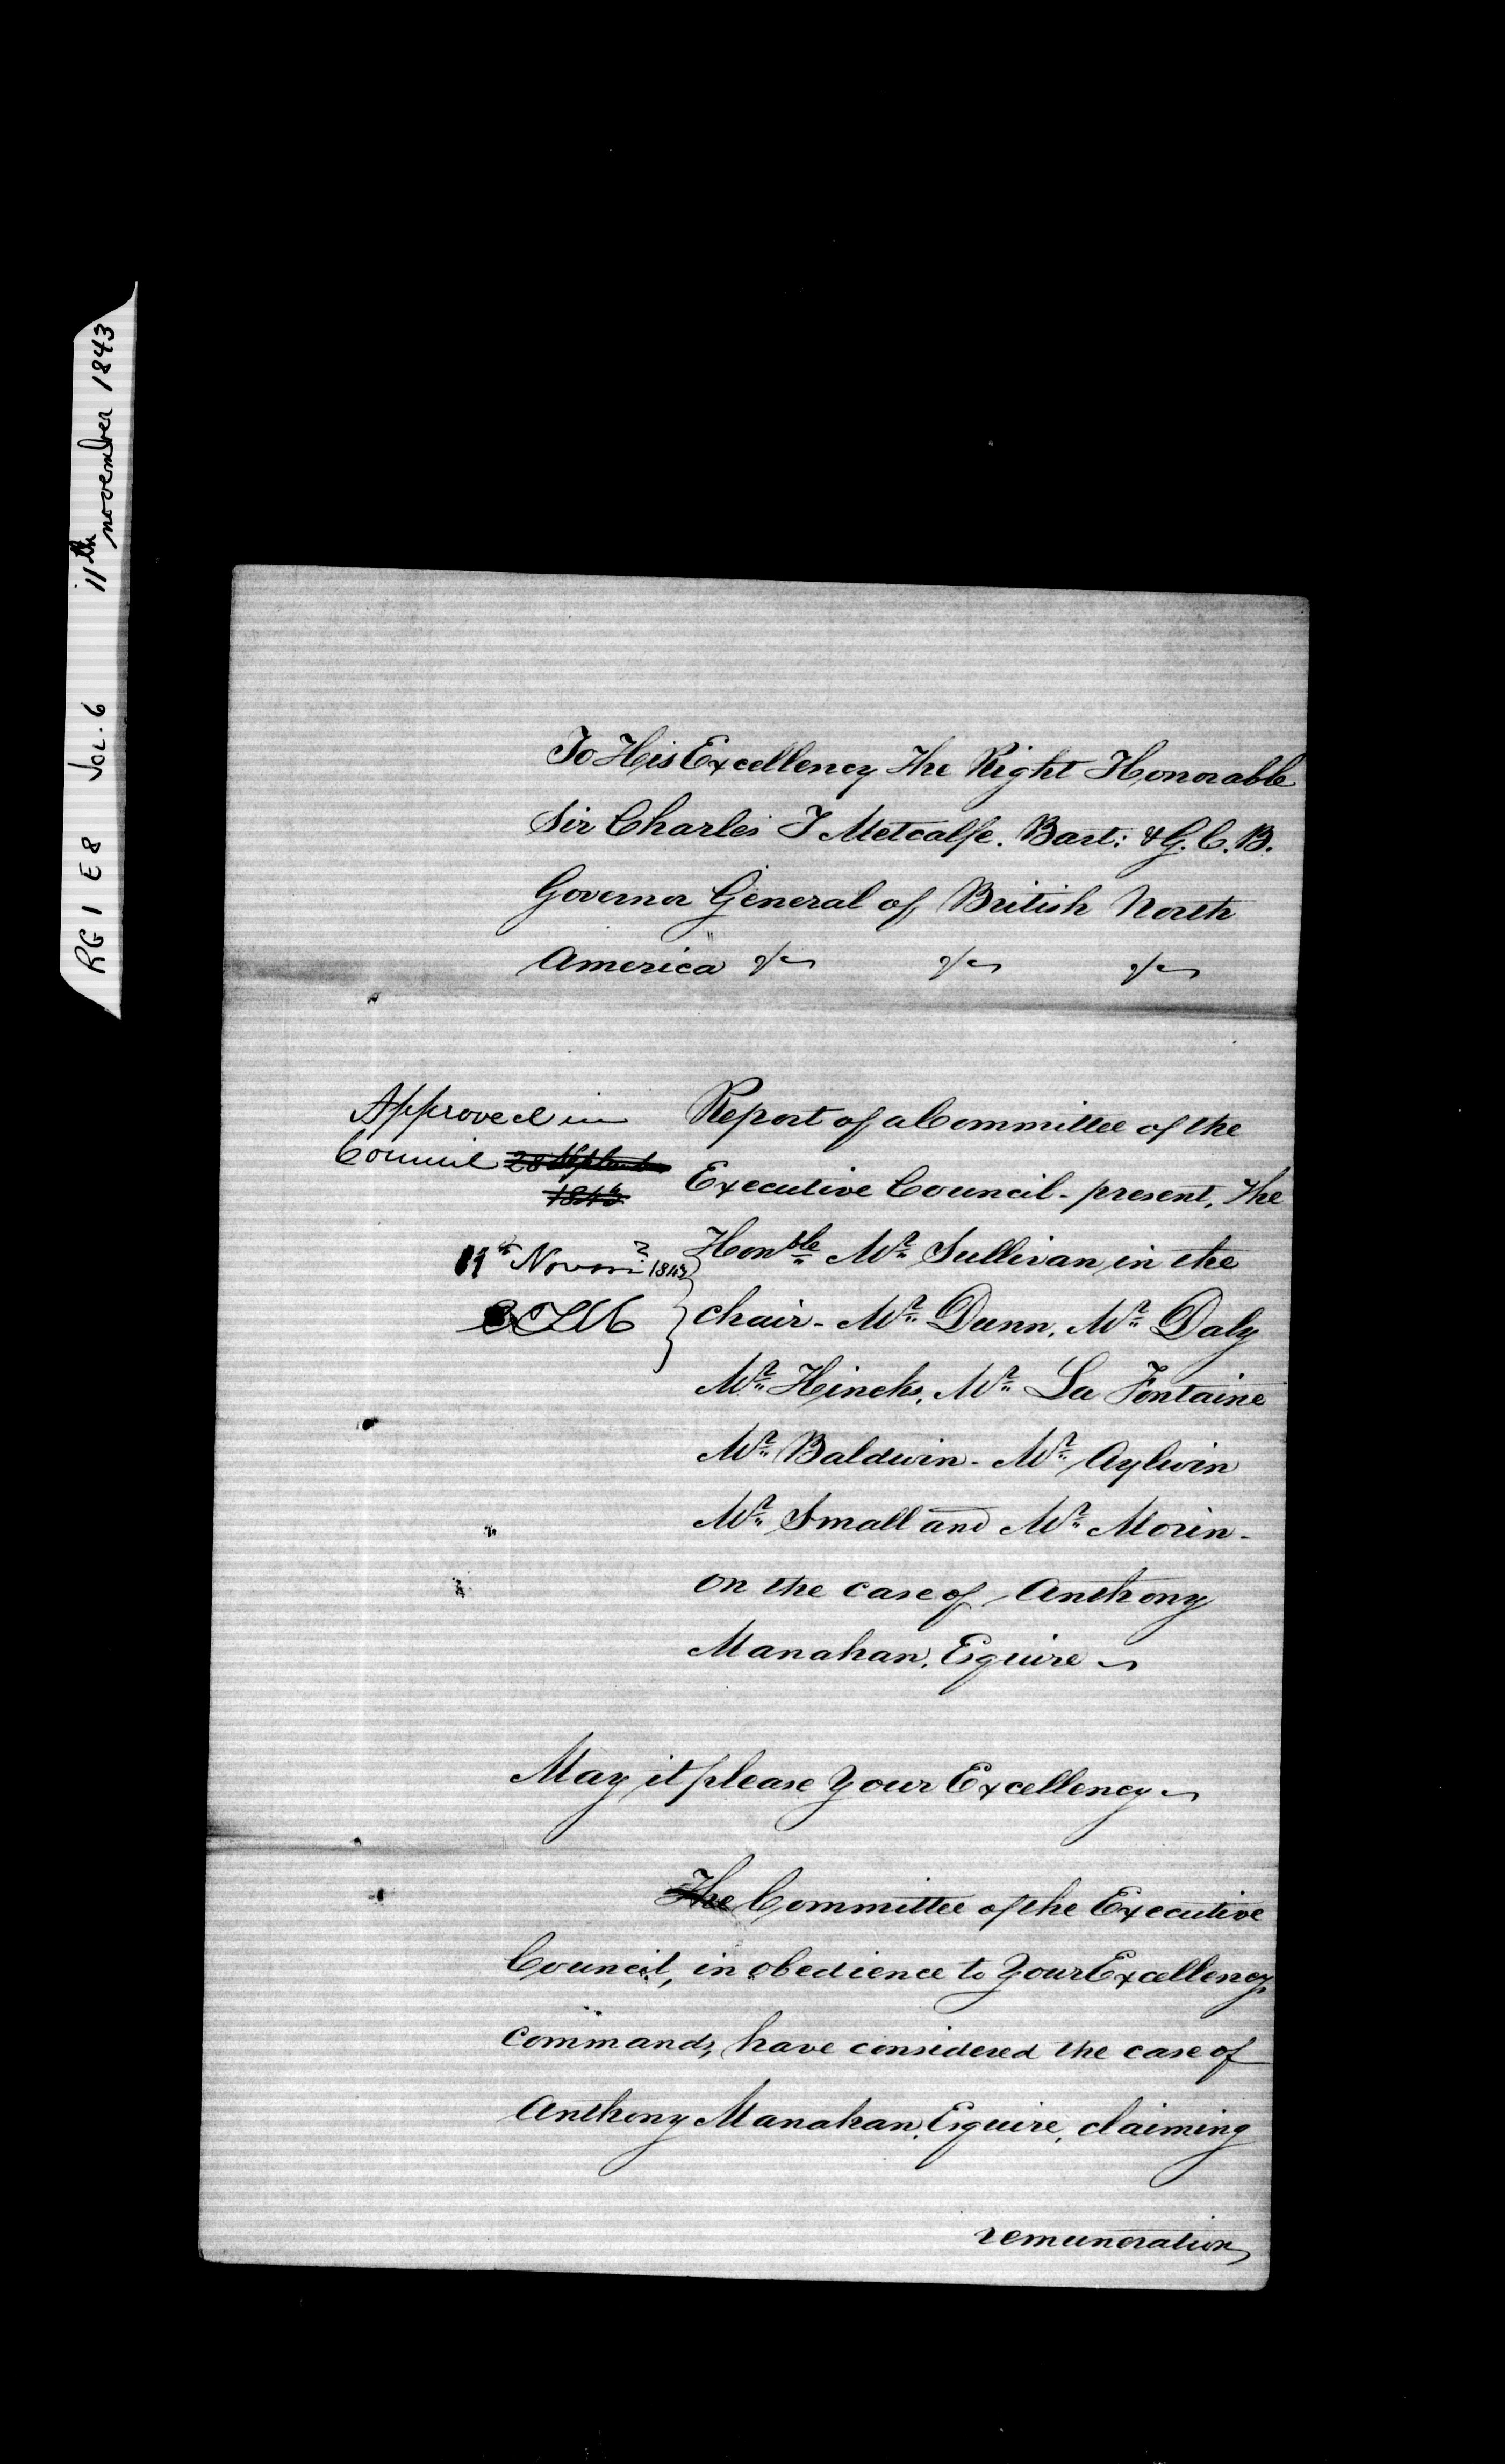 RG 1 E8 Vol. 6 11th november 1843
To His Excellency The Right Honorable
Sir Charles T Metcalfe. Bart: & G. C. B.
Governor General of British North
America &c &c &c
Approved in
Council 28 September
1843
11th Novem 1843
CTM
Report of a Committee of the
Executive Council - present, The
Honble Mr Sullivan in the
chair - Mr Dunn, Mr Daly
Mr Hincks, Mr La Fontaine
Mr Baldwin - Mr Aylwin
Mr Small and Mr Morin -
on the case of Anthony
Manahan, Esquire
May it please Your Excellency
The Committee of the Executive
Council, in obedience to Your Excellencys
commands, have considered the case of
Anthony Manahan, Esquire, claiming
remuneration